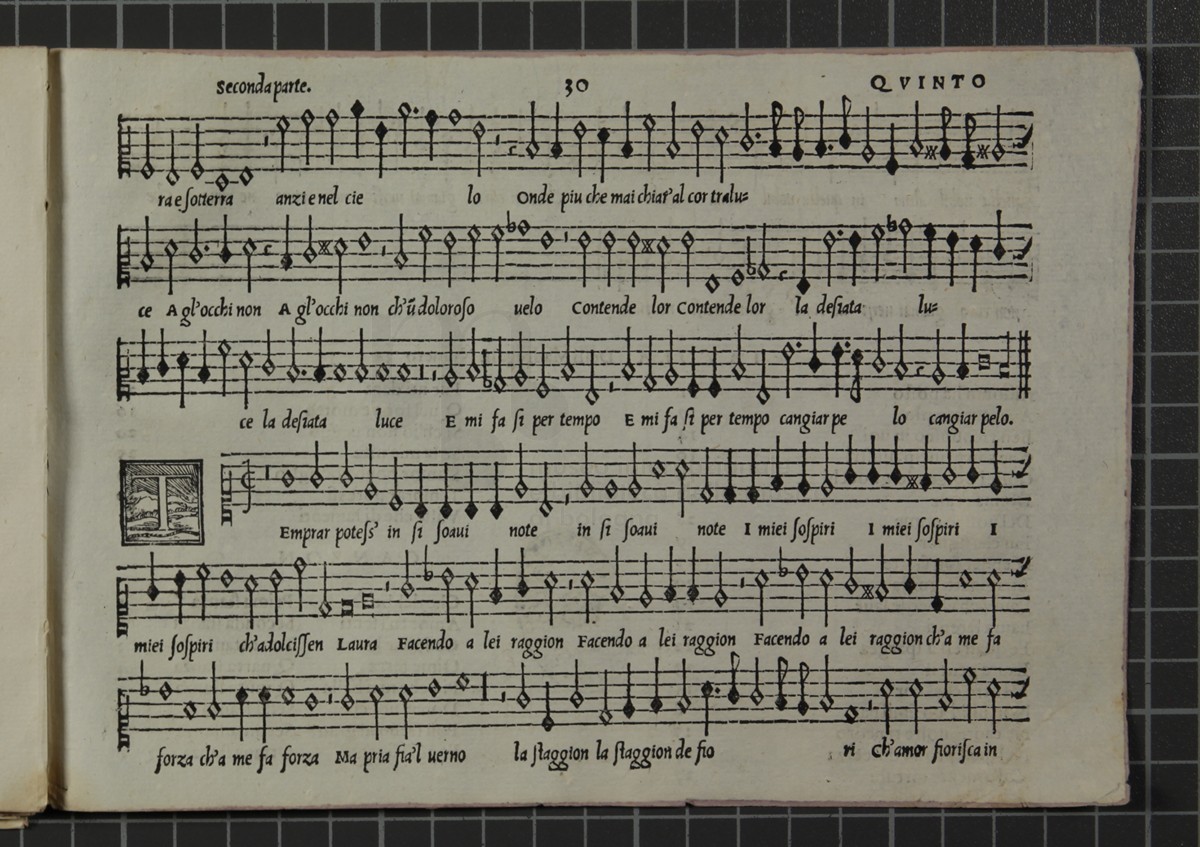 Seconda parte. 30 QVINTO
ra e ſotterra anzi e nel cie lo Onde piu che mai chiar'al cor tralu=
ce A gl'occhi non A gl'occhi non ch'ũ doloroſo uelo Contende lor Contende lor la deſiata lu=
ce la deſiata luce E mi fa ſi per tempo E mi fa ſi per tempo cangiar pe lo cangiar pelo.
T Emprar poteſs' in ſi ſoaui note in ſi ſoaui note I miei ſoſpiri I miei ſoſpiri I
miei ſoſpiri ch'adolciſſen Laura Facendo a lei raggion Facendo a lei raggion Facendo a lei raggion ch'a me fa
forza ch'a me fa forza Ma pria fia'l uerno la ſtaggion la ſtaggion de fio ri Ch'amor fioriſca in